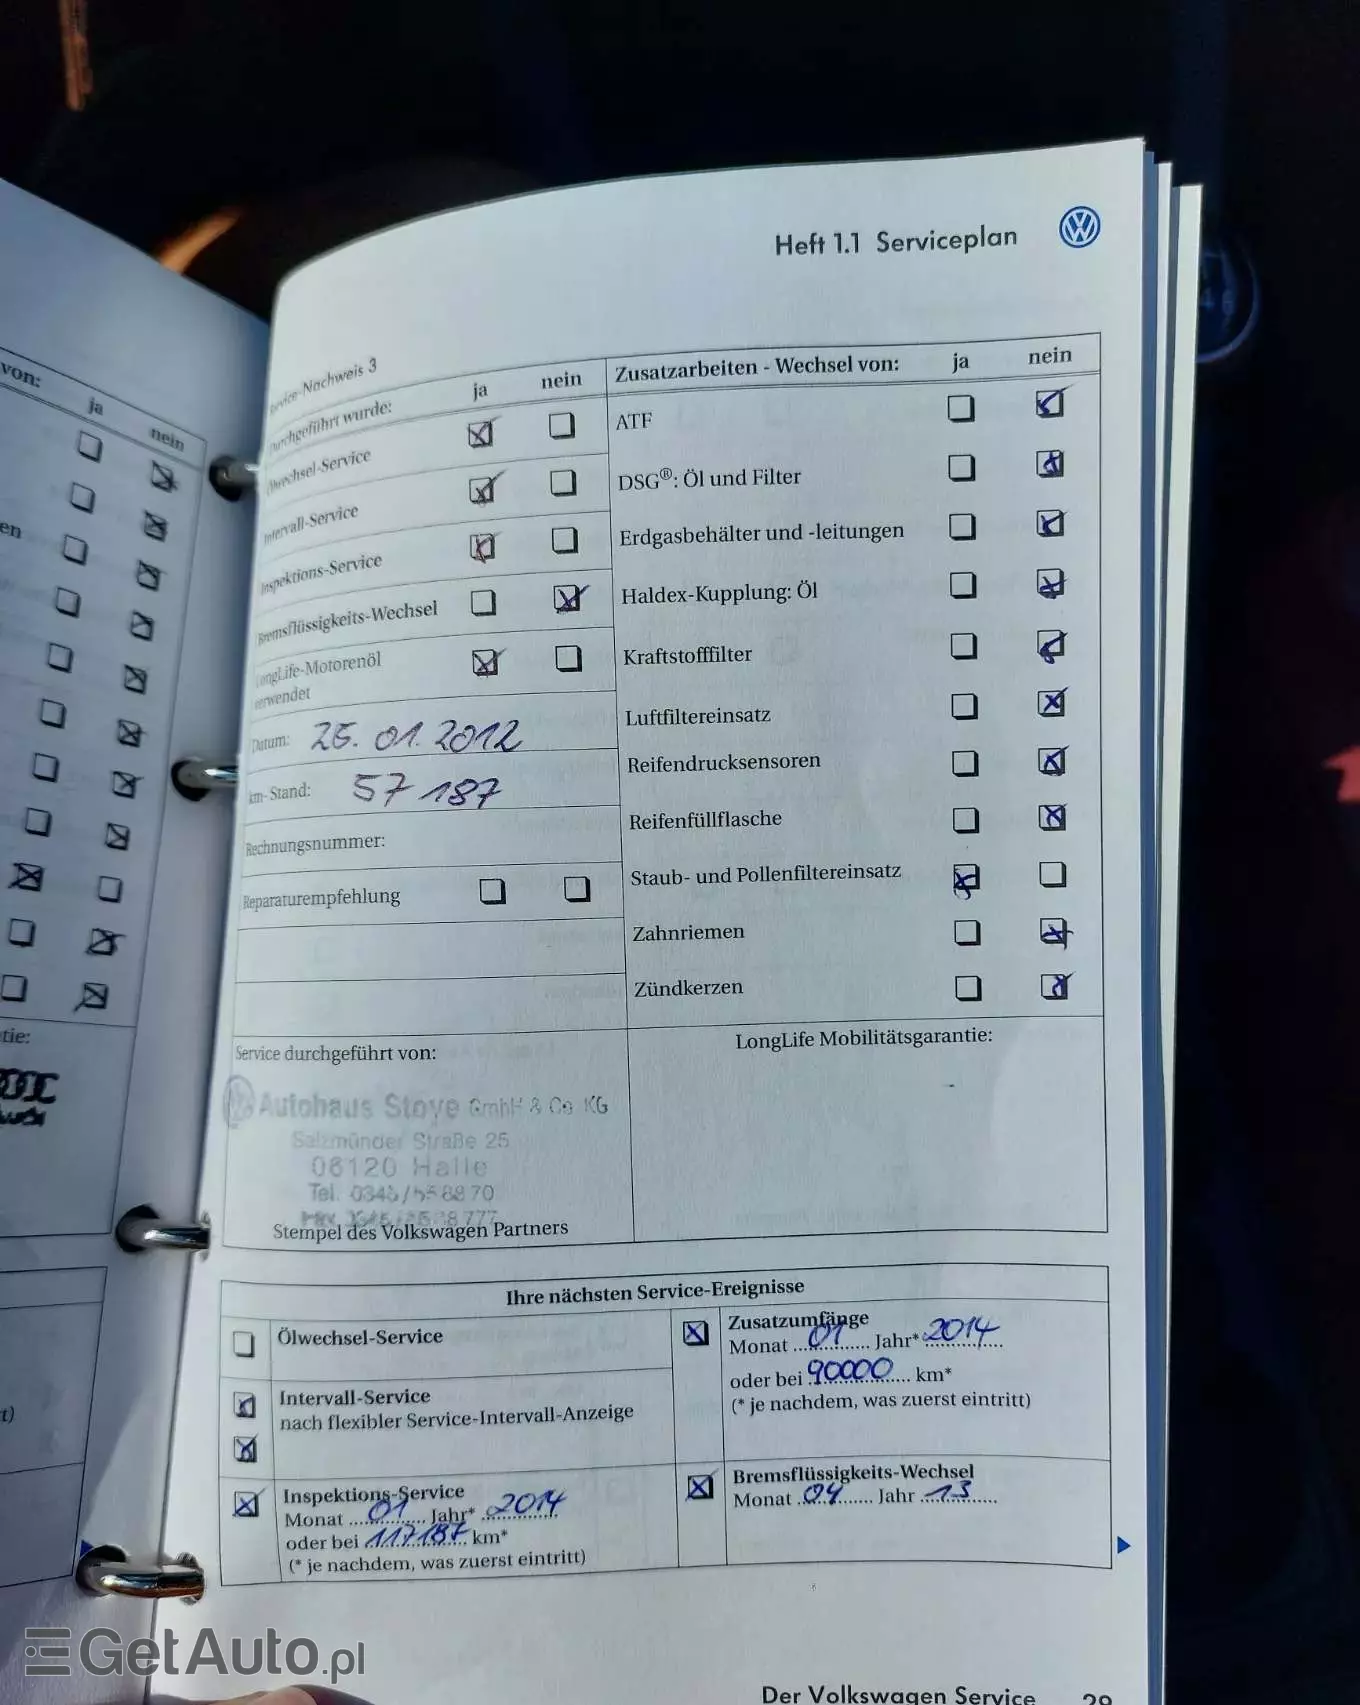 Heft 1.1 Serviceplan
von:
ja
nein
en
tie:
Audi
t)
Nachweis 3
Durchgeführt wurde:
ja
nein
Ölwechsel-Service
Intervall-Service
Inspektions-Service
Bremsflüssigkeits-Wechsel
LongLife-Motorenöl
verwendet
Datum: 25.01.2012
km-Stand: 57187
Rechnungsnummer:
Reparaturempfehlung
Zusatzarbeiten - Wechsel von:
ja
nein
ATF
DSG®: Öl und Filter
Erdgasbehälter und -leitungen
Haldex-Kupplung: Öl
Kraftstofffilter
Luftfiltereinsatz
Reifendrucksensoren
Reifenfüllflasche
Staub- und Pollenfiltereinsatz
Zahnriemen
Zündkerzen
Service durchgeführt von:
Autohaus Stoye GmbH & Co KG
Salzmünder Straße 25
06120 Halle
Tel.
Stempel des Volkswagen Partners
LongLife Mobilitätsgarantie:
Ihre nächsten Service-Ereignisse
Ölwechsel-Service
Intervall-Service
nach flexibler Service-Intervall-Anzeige
Inspektions-Service
Monat 01 Jahr* 2014
oder bei 117187 km*
(* je nachdem, was zuerst eintritt)
Zusatzumfänge
Monat 01 Jahr* 2014
oder bei 90000 km*
(* je nachdem, was zuerst eintritt)
Bremsflüssigkeits-Wechsel
Monat 04 Jahr 13
Der Volkswagen Service
GetAuto.pl